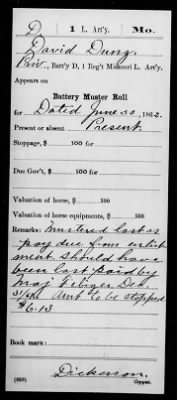 D 1 L. Art'y. Mo.
David Dung
Priv., Batt'y D, 1 Reg't Missouri L. Art'y.
Appears on
Battery Muster Roll
for Dated June 30, 1862.
Present or absent Present
Stoppage, $ 100 for
Due Gov't, $ 100 for
Valuation of horse, $ 100
Valuation of horse equipments, $ 100
Remarks: Mustered last as
pay due from enlist
ment should have
been last paid by
Maj Dec.
31/61 Amt to be stopped
$6.13
Book mark:
(858) Dickerson
Copyist.